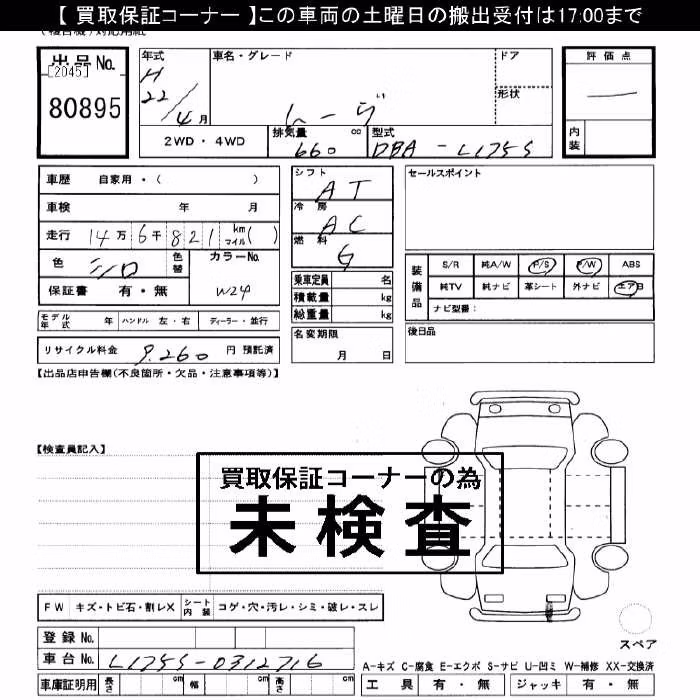 【 買取保証コーナー 】この車両の土曜日の搬出受付は17:00まで
出品No.
[2045]
80895
年式
H
22/4月
車名・グレード
ムーヴ
ドア
形状
評価点
内装
2WD・4WD
排気量 cc
660
型式
DBA-L175S
車歴 自家用・( )
車検 年 月
走行 14万6千821 km マイル( )
色 シロ 色替
カラーNo.
W24
保証書 有・無
シフト
AT
冷房
AC
燃料
G
乗車定員 名
積載量 kg
総重量 kg
セールスポイント
装備品
S/R 純A/W P/S P/W ABS
純TV 純ナビ 革シート 外ナビ エアB
ナビ型番:
モデル年式 年 ハンドル 左・右 ディーラー・並行
名変期限
月 日
後日品
リサイクル料金 9.260 円 預託済
【出品店申告欄(不良箇所・欠品・注意事項等)】
【検査員記入】
買取保証コーナーの為
未検査
FW キズ・トビ石・割レX シート内装 コゲ・穴・汚レ・シミ・破レ・スレ
スペア
登録No.
車台No. L175S-0312716
A-キズ C-腐食 E-エクボ S-サビ U-凹ミ W-補修 XX-交換済
車庫証明用 長さ cm 幅 cm 高さ cm
工具 有・無 ジャッキ 有・無